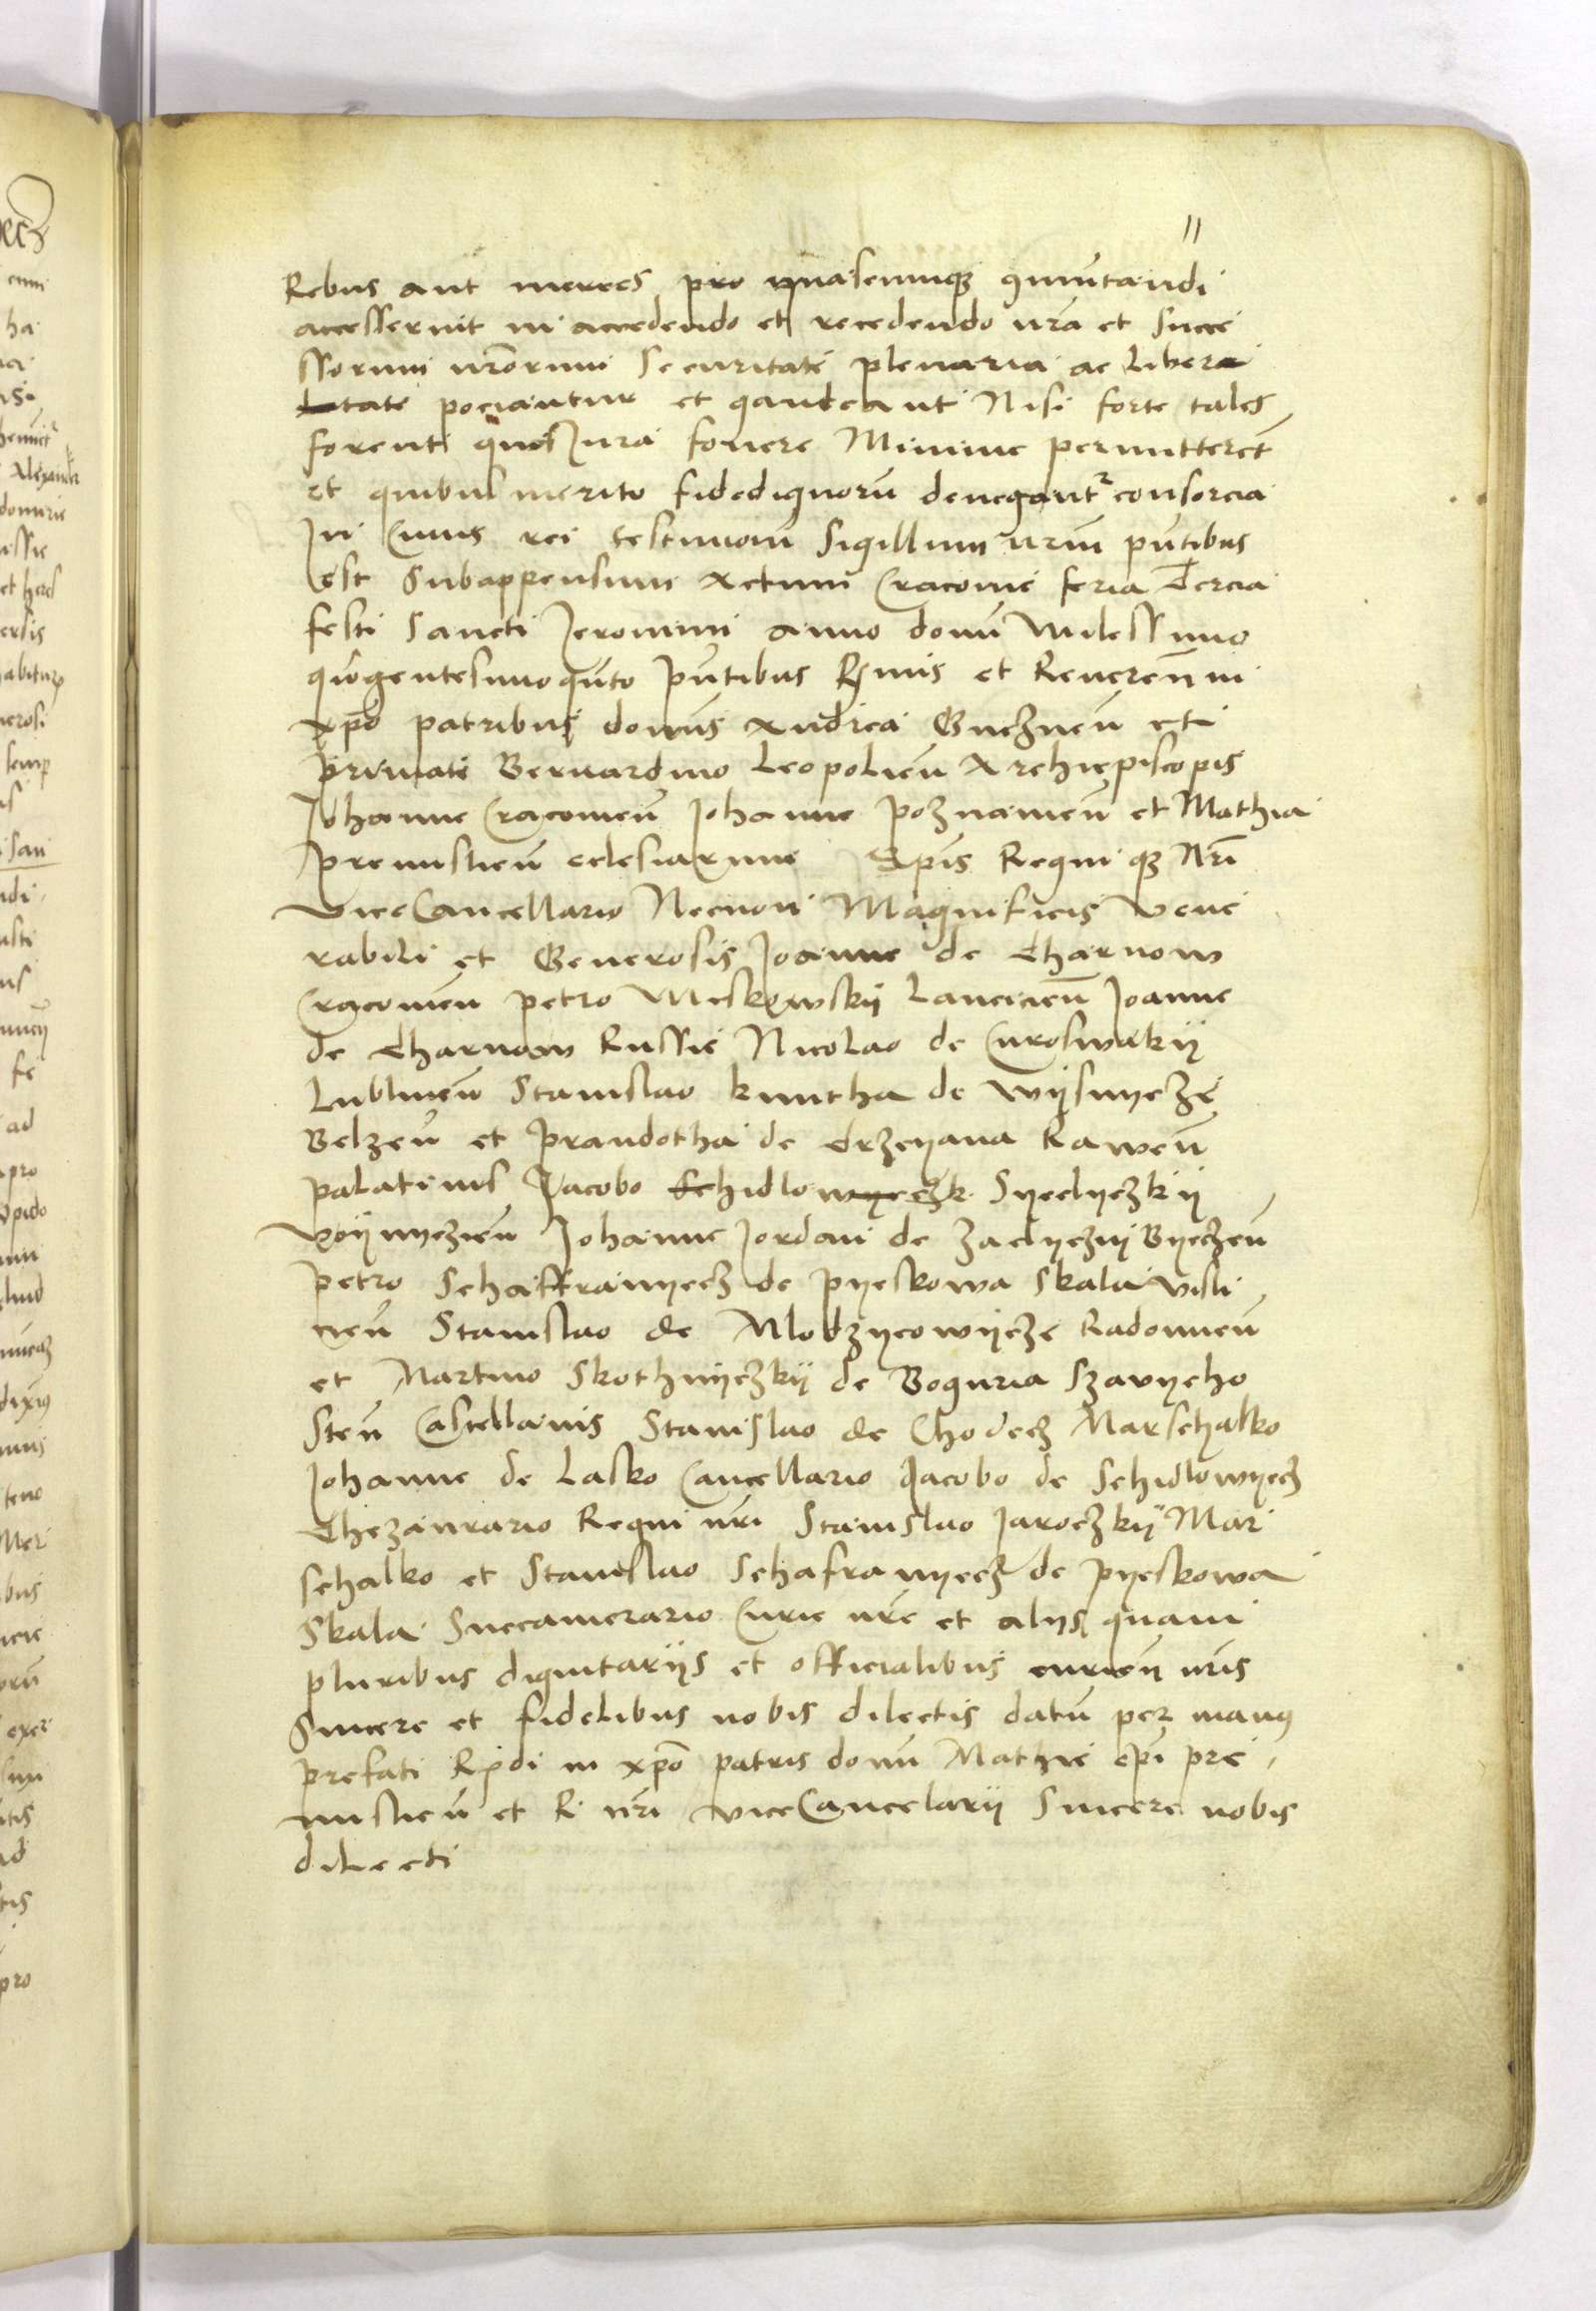 11
Rebus aut merces pro quasemuqz ꝯmūtandi
accesserint in accedendo et recedendo nr̃a et Succe
ssorum nr̃orum Securitate plenaria ac libera
tate pociantur et gaudeant Nisi forte tales
forent quos Jura fovere Minime permitteret
et quibus merito fidedignorū denegantr consorcia
In Cuius rei testimoniū Sigillum nrm̃ pn̄tibus
est Subappensum Actum Cracovie feria Tercia
festi Sancti Jeronimi anno domī Milessimo
qīngentesimoqūto pn̄tibus Rsmis et Reveren̄ in
xpō patribus domīs Andrea Gneznen̄ et
primate Bernardino Leopolien̄ Archiepiscopis
Johanne Cracovien̄ Johanne Poznanien̄ et Mathia
premislien̄ eclesiarum Epīs Regni qz Nr̄i
viceCancellario Necnon Magnificis Vene
rabili et Generosis Joanne de Tharnow
Cracovien̄ Petro Miskowskij Lancicien̄ Joanne
de Tharnow Russie Nicolao de Curoswakij
Lublinen̄ Stanislao kmitha de wijsnycze
Belzen̄ et Prandotha de Trzcyana Rawen̄
palatinis Jacobo Schidlowyeczk Syeclyczkij
woijnyczien̄ Johanne Jordan de Zaclyczij Byeczen̄
Petro Schaffranyecz de Pyeskowa Skala Visli
cien̄ Stanislao de Mlodzyeowijcze Radomien̄
et Martino Skothnijczkij de Boguria Szavycho
sten̄ Castellanis Stanislao de Chodecz Marschalko
Johanne de Lasko Cancellario Jacobo de Schidlowyecz
Thezaurario Regni nr̄i Stanislao Jaroczkij Mar
schalko et Stanislao Schafranyecz de Pyeskowa
Skala Succamerario Curie nr̄e et alijs quam
pluribus dignitarijs et officialibus curien̄ nr̄is
Sincere et fidelibus nobis dilectis datū per manꝰ
prefati Rndi in xpō patris domī Mathie epī pre
mislien̄ et R nr̄i viceCancelarij Sincere nobis
dilecti